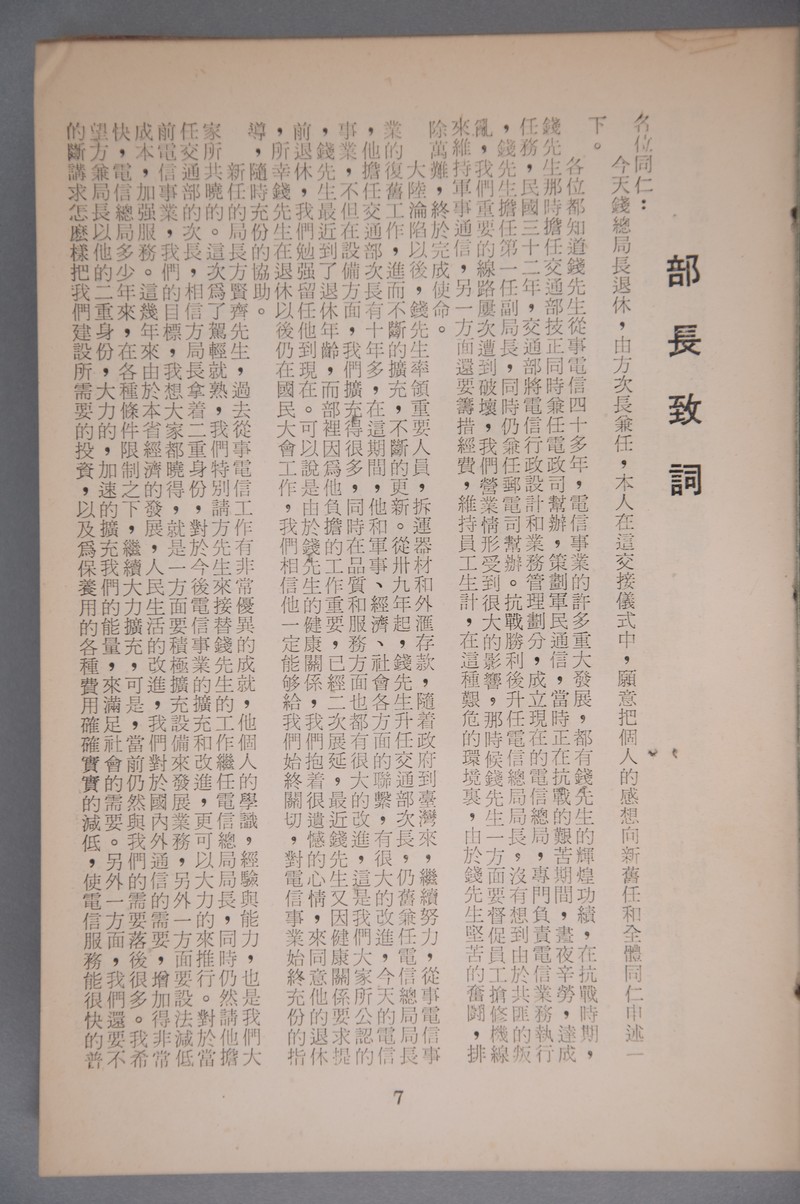 部長致詞
各位同仁：
今天錢總局長退休，由方次長兼任，本人在這交接儀式中，願意把個人的感想向新舊任和全體同仁申述一
下。
各位都知道錢先生從事電信四十多年，電信事業的許多重大發展，都有錢先生的輝煌功績，在抗戰時期，
錢先生那時擔任交通部技正同時兼任電政司幫辦，策劃軍民通信，當時正在抗戰的艱苦期間，晝夜辛勞，達成
任務，民國三十二年，交通部將電信行政設計和業務管理劃分，成立現在的電信總局，專門負責電信業務執行
，錢先生擔任第一任副局長，同時仍兼任郵電司幫辦。抗戰勝利後升任電信總局局長，沒有想到由於共匪的叛
亂，我們重要的線路屢次遭到破壞，我們營業情形受到很大的影響，那時候錢先生一方面要督促員工搶修機線
來維持軍事通信，另一方面還要籌措經費，維持員工生計，在這種艱危的環境裏，由於錢先生堅苦的奮鬪，排
除萬難，終於完成使命。
大陸淪陷以後，錢先生率領重要人員，拆運器材和外滙存款，隨着政府到臺灣來，繼續努力，從事電信事
業的復舊工作，進而不斷的擴充，不斷的更新。從卅九年起，錢先生升任交通部次長，仍舊兼任電信總局局長
，他擔任交通部次長有十年多，在這期間，他和軍事、經濟、社會各方面的聯繫，有很大的改進，今天的電信
事業，不但在設備方面，我們擴充得很多，同時在品質和服務方面也都有很大的改進，這是我們大家所公認的
，錢先生最近到了退休年齡，而部裡因爲他負擔的工作重要，已經二次展延，最近錢先生又因健康關係要求提
前退休，我們勉强留任他到現在。可以說是由於錢先生的健康關係，我們抱着很遺憾的心情，來同意他的退休
，所幸錢先生在退休以後仍在國民大會工作，我們相信他一定能够給我們始終關切，對電信事業始終充份的指
導，隨時充份的協助。
新任的局長方賢齊先生，過去從事電信工作有非常優異的成就，他個人的學識，經驗與能力，也是我們大
家所共曉的。這次爲了駕輕就熟，我們特別請方先生來接替錢先生的工作繼任電信總局局長，同時仍然請他擔
任交通部的次長，相信方局長拿着二重身份，對於今後電信事業的擴充和改進，更可以大力的來推行。對於當
前電信事業，我們的目標，我想大家都曉得，就是一方面要積極擴充設備來發展業務，另外一方面要設法減低
成本，加强服務。這幾年來由於本省經濟的發展，人民生活的改進，我們對於國內外通信的需要，增加得非常
快，電信總局多少年來，在各種條件限制之下，繼續大力擴充，可是，當前仍然與我們的需要落後很多。我希
望方兼局長以他的二重身份，大力的，加速的擴充我們的能量，來滿足社會的需要。另外一方面，我們還要不
的斷講求怎麽樣把我們建設所需要的投資，以及爲保養用的各種費用確確實實的減低，使電信服務能很快的普
7